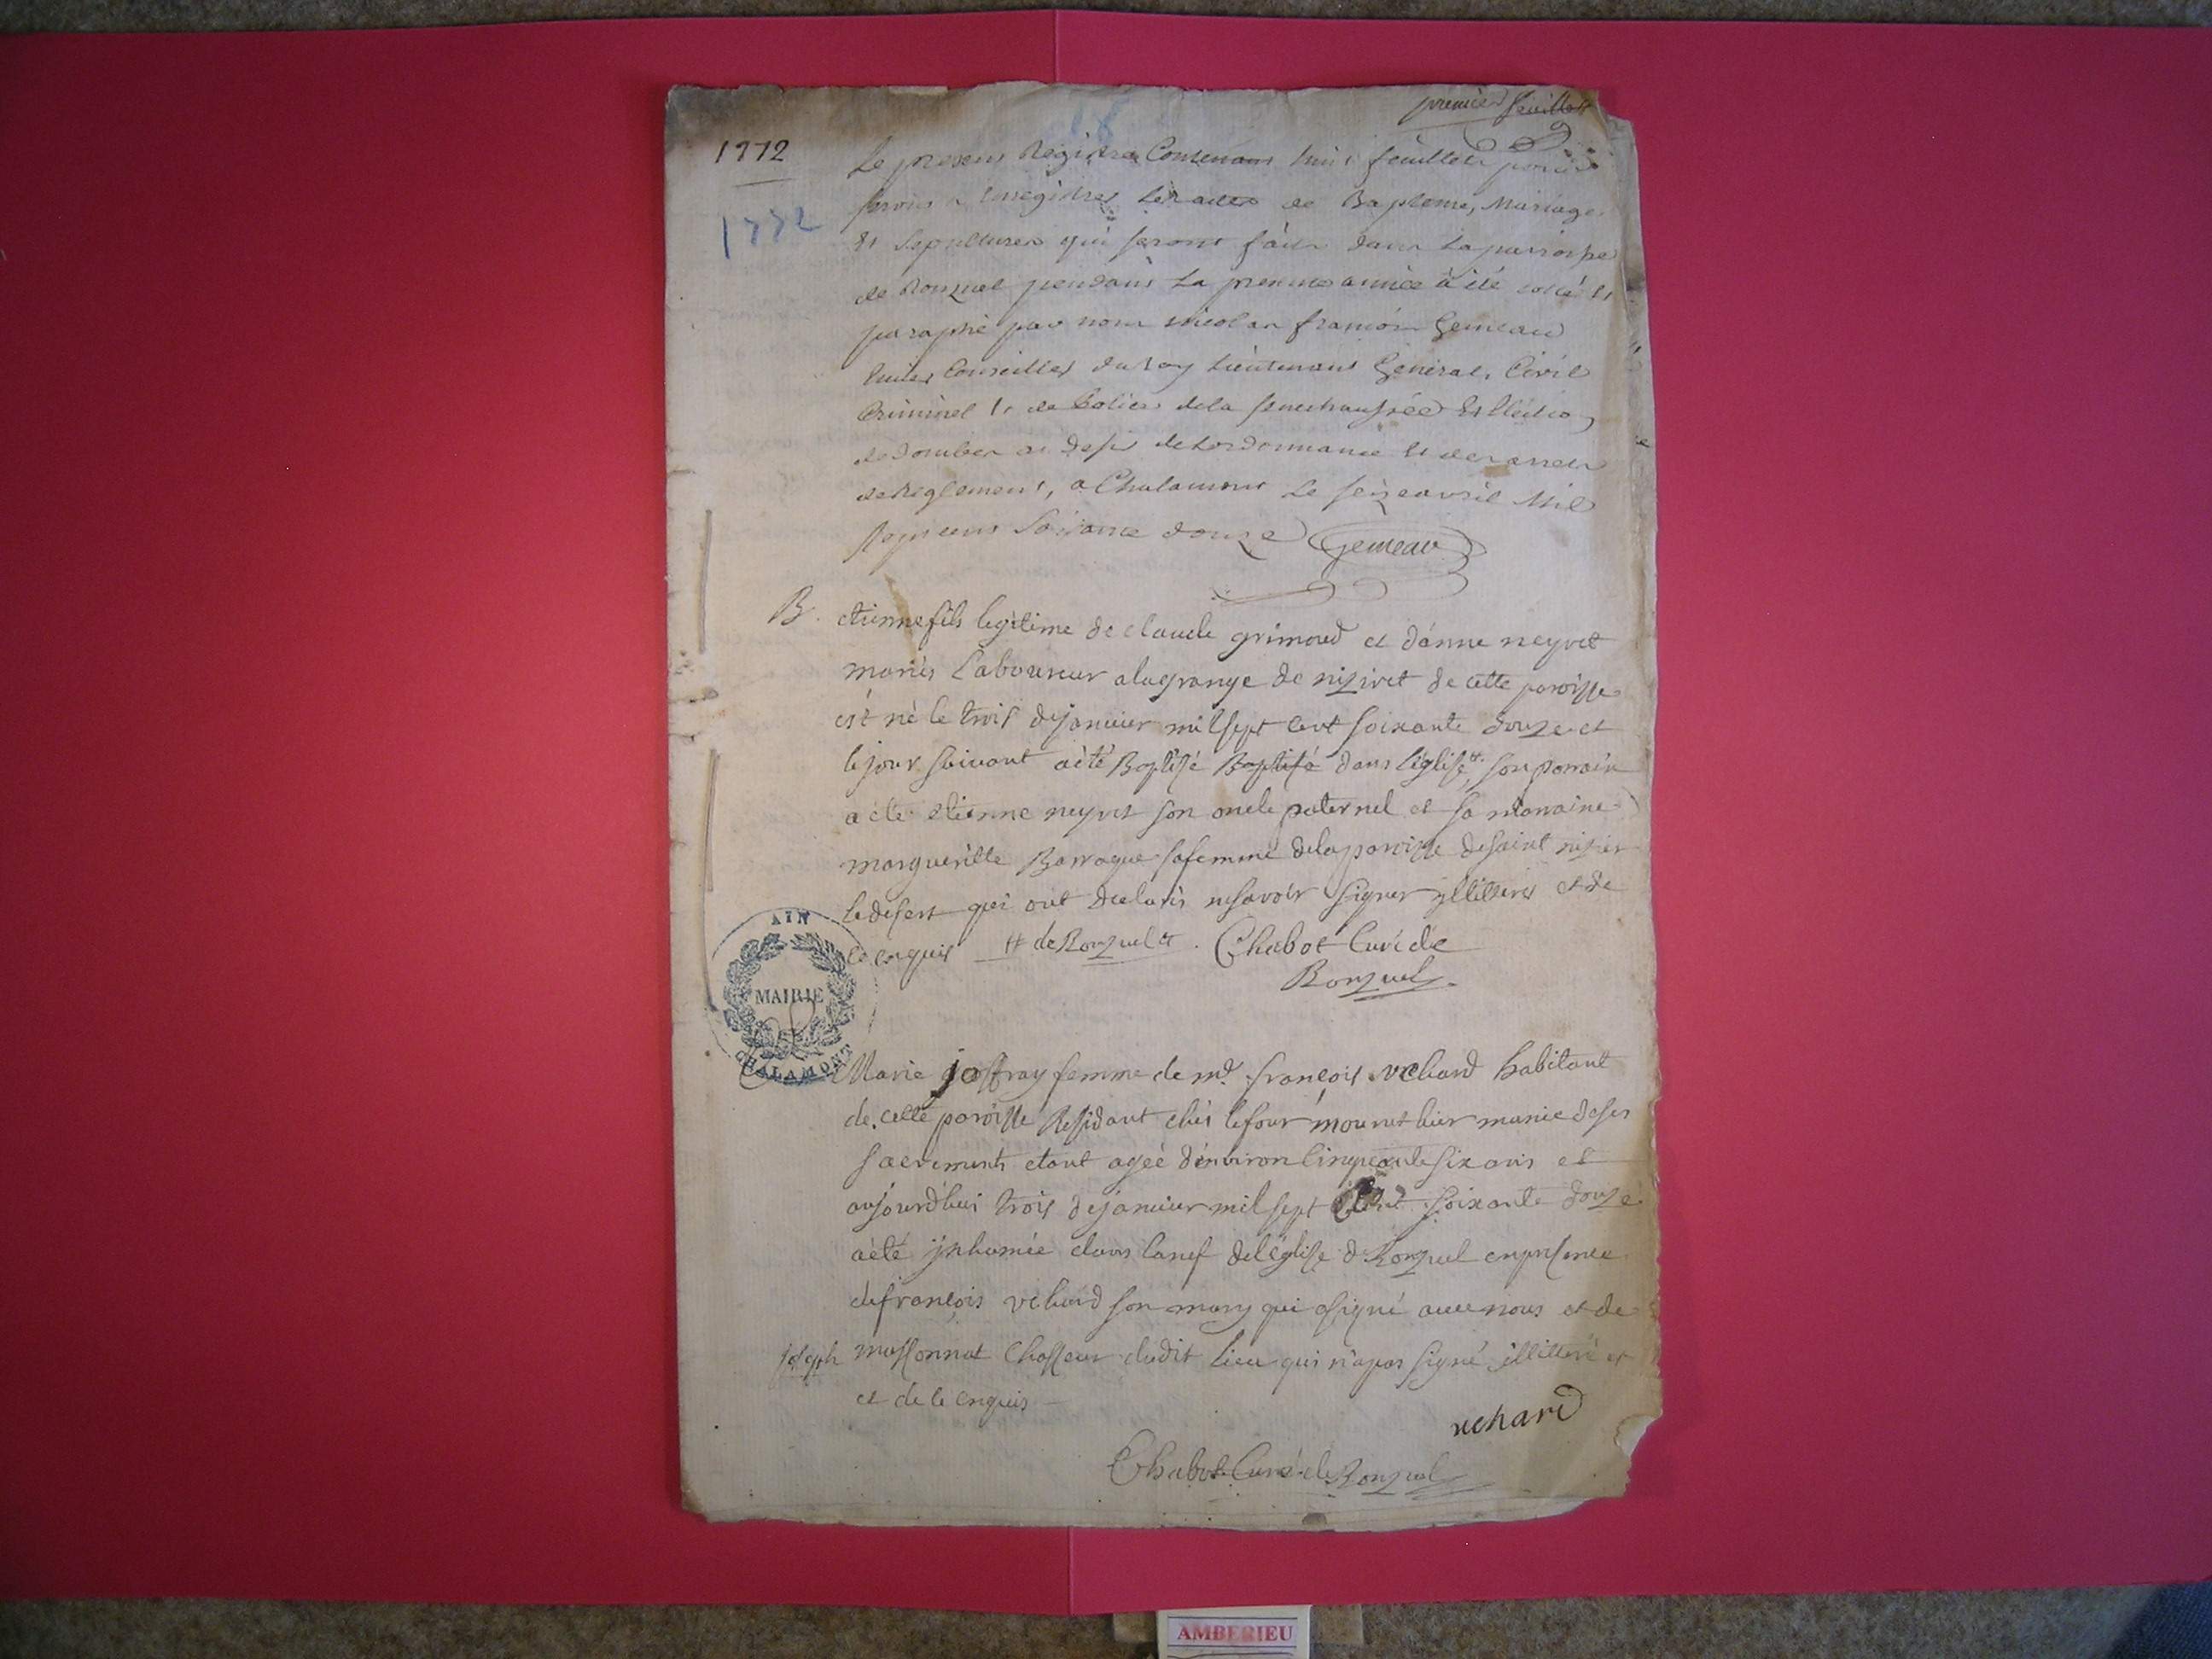 premier feuillet
1772
1772
18
Le present Registre Contenant huit feuillets pour
servir a Enregistrer les actes de Bapteme, Mariages
Et Sepultures qui seront faits dans La parroisse
de Ronzuel pendant La presente année à été cotté Et
paraphé par nous Nicolas françois Gemeau
Conseiller du Roy Lieutenant Général, Civil
Criminel Et de Police de la Senechaussée Et Election
de Dombes au desir de Lordonnance Et des arrets
de Reglement, a Chalamont Le seize avril Mil
Sept cent Soixante douze Gemeau
B. etienne fils legitime de claude grimoud et d'anne neyret
mariés Laboureur a la grange de nizivet de cette paroisse
est né le trois de janvier mil sept cent soixante douze et
le jour suivant a été Baptisé Baptisé dans l'église #, son parrain
a été etienne neyret son oncle paternel et sa marraine
margueritte Barraque sa femme de la paroisse de saint nizier
le desert qui ont declarés ne savoir signer illitterés et de
ce enquis # de Ronzuel # . Chabot Curé de
Ronzuel
AIN
MAIRIE
CHALAMONT
Marie joffray femme de md. françois vchard habitant
de cette paroisse Residant chés le four mourut hier munie de ses
sacrements etant ageé d'environ cinquante six ans et
aujourdhui trois de janvier mil sept cent soixante douze
a été inhumée dans la nef de l'église de Ronzuel en presence
de françois vchard son mary qui a signé avec nous et de
joseph massonnat Chasseur dudit lieu qui n'a pas signé illitteré et
et de ce enquis
vchard
Chabot Curé de Ronzuel
AMBERIEU